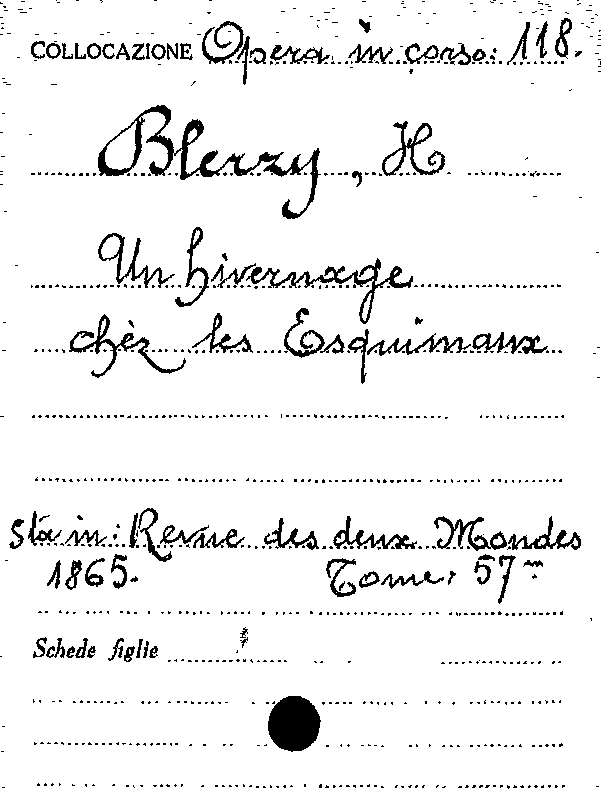 COLLOCAZIONE Opera in corso: 118.
Blerzy, H
Un hivernage
chèz les Esquimaux
Sta in: Revue des deux Mondes
1865. Tome: 57m
Schede figlie